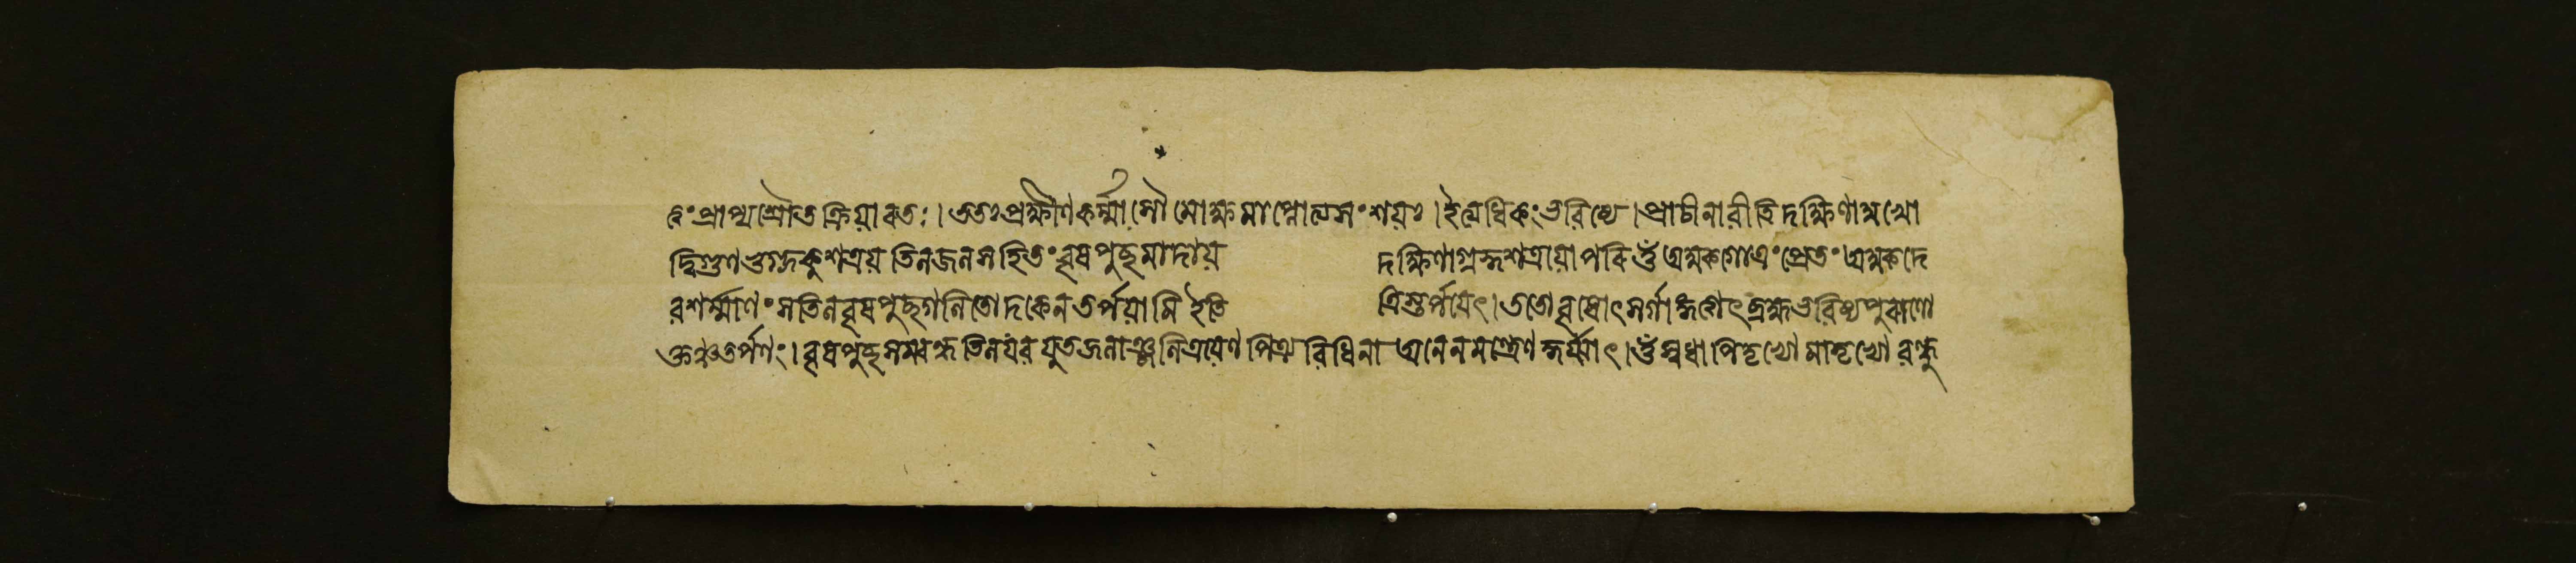 হং প্রাপ্য শ্রৌতক্রিয়াবতঃ। ততঃ প্রক্ষীণকর্ম্মাসৌ মোক্ষমাপ্নোত্যসংশয়ঃ। ইত্যধিকং ভবিষ্যে। প্রাচীনাবীতি দক্ষিণামুখো
দ্বিগুণভুগ্নকুশত্রয় তিলজলসহিতং বৃষপুচ্ছমাদায় দক্ষিণাগ্রকুশত্রয়োপরি ওঁ অমুকগোত্রং প্রেতং অমুকদে
বশর্ম্মাণং সতিলবৃষপুচ্ছগলিতোদকেন তর্পয়ামি ইতি ত্রিস্তর্পয়েৎ। ততো বৃষোৎসর্গাঙ্গ ভবিষ্যপুরাণো
ক্ততর্পণং। বৃষপুচ্ছ তিলযবযুতজলাঞ্জলিত্রয়েণ পিতৃবিধিনা অনেন মন্ত্রেণ কুর্য্যাৎ। ওঁ স্বধা পিতৃভ্যো মাতৃভ্যো বন্ধু